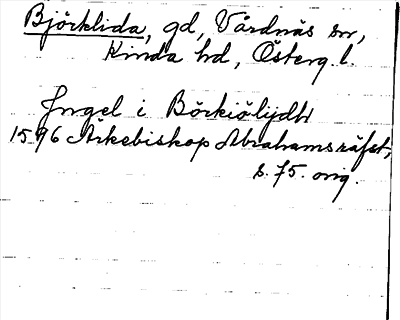 Björklida, gd, Vårdnäs sn,
Kinda hd, Österg. l.
Ingel i Börkiölijdh
1596 Ärkebiskop Abrahams räfst,
s. 75. orig.